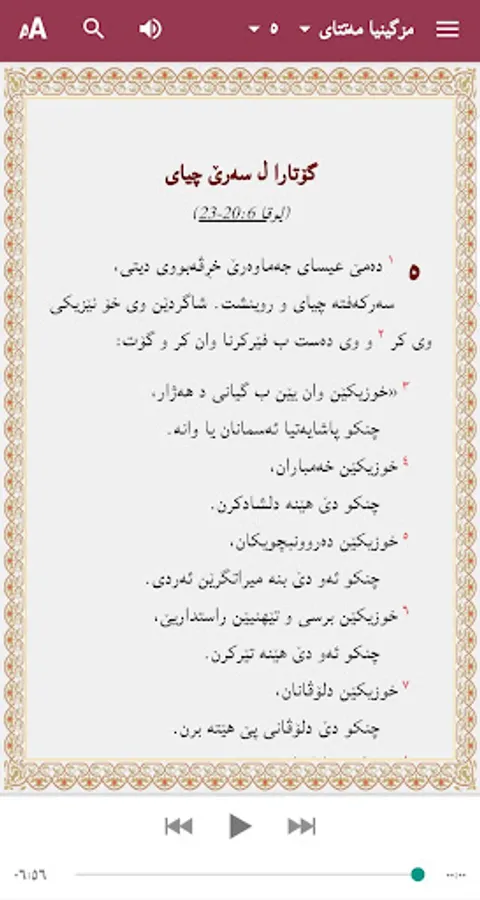 مزگینیا مەتتای ٥
گۆتارا ل سەرێ چیای
(لوقا 6:‏20-23)
٥ ١ دەمێ عیسای جەماوەرێ خڕڤەبووی دیتی،
سەرکەفتە چیای و روینشت. شاگردێن وی خۆ نێزیکی
وی کر ٢ و وی دەست ب فێرکرنا وان کر و گۆت:
٣ «خوزیکێن وان یێن ب گیانی د هەژار،
چنکو پاشایەتیا ئەسمانان یا وانە.
٤ خوزیکێن خەمباران،
چنکو دێ هێنە دلشادکرن.
٥ خوزیکێن دەروونبچویکان،
چنکو ئەو دێ بنە میراتگرێن ئەردی.
٦ خوزیکێن برسی و تێهنیێن راستداریێ،
چنکو ئەو دێ هێنە تێرکرن.
٧ خوزیکێن دلۆڤانان،
چنکو دێ دلۆڤانی پێ هێتە برن.
-٠٦:٥٦
--:--